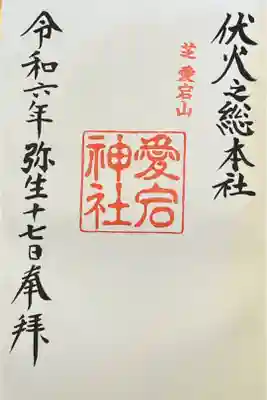 伏火之総本社
芝愛宕山
愛宕
神社
令和六年弥生十七日奉拝